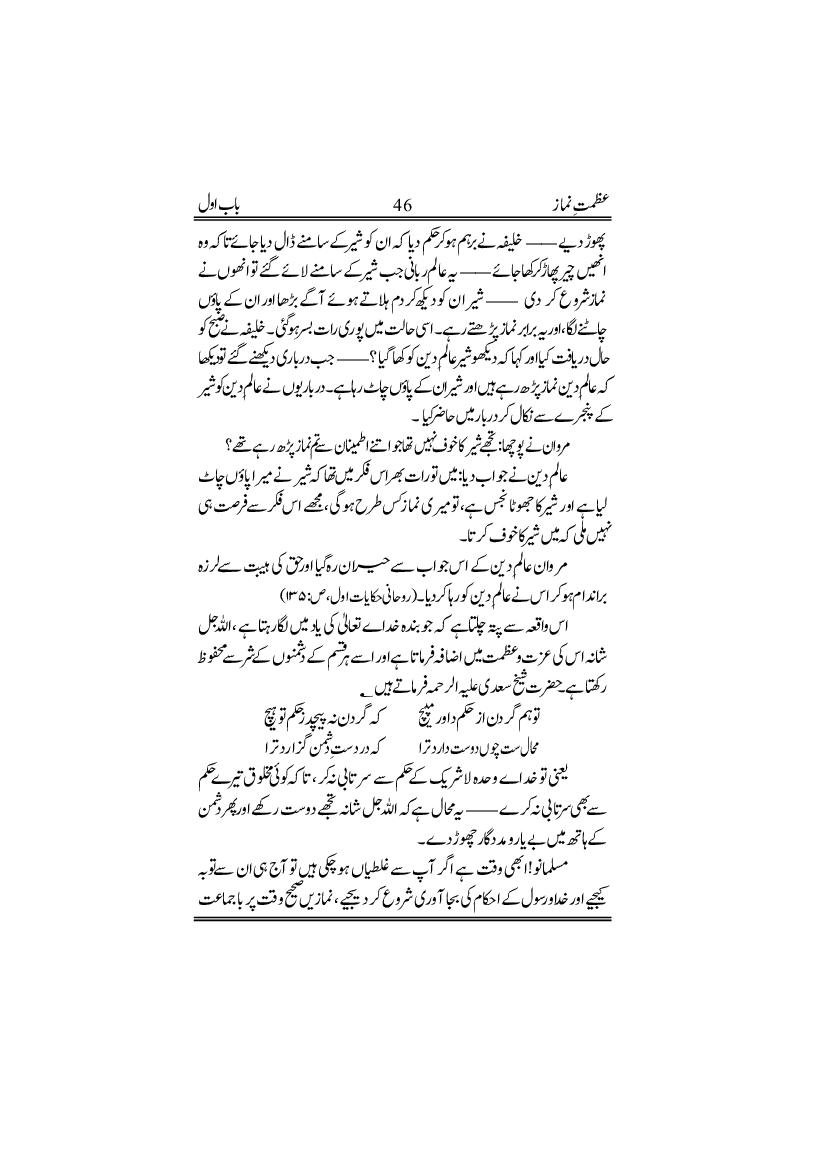 عظمتِ نماز 46 باب اول
پھوڑ دیے —— خلیفہ نے برہم ہوکر حکم دیا کہ ان کو شیر کے سامنے ڈال دیا جائے تاکہ وہ
انھیں چیر پھاڑ کر کھا جائے —— یہ عالم ربانی جب شیر کے سامنے لائے گئے تو انھوں نے
نماز شروع کر دی —— شیر ان کو دیکھ کر دم ہلاتے ہوئے آگے بڑھا اور ان کے پاؤں
چاٹنے لگا، اور یہ برابر نماز پڑھتے رہے۔ اسی حالت میں پوری رات بسر ہوگئی۔ خلیفہ نے صبح کو
حال دریافت کیا اور کہا کہ دیکھو شیر عالم دین کو کھا گیا؟ —— جب درباری دیکھنے گئے تو دیکھا
کہ عالم دین نماز پڑھ رہے ہیں اور شیر ان کے پاؤں چاٹ رہا ہے۔ درباریوں نے عالم دین کو شیر
کے پنجرے سے نکال کر دربار میں حاضر کیا ۔
مروان نے پوچھا: تجھے شیر کا خوف نہیں تھا جو اتنے اطمینان سے تم نماز پڑھ رہے تھے؟
عالم دین نے جواب دیا: میں تو رات بھر اس فکر میں تھا کہ شیر نے میرا پاؤں چاٹ
لیا ہے اور شیر کا جھوٹا نجس ہے، تو میری نماز کس طرح ہوگی، مجھے اس فکر سے فرصت ہی
نہیں ملی کہ میں شیر کا خوف کرتا۔
مروان عالم دین کے اس جواب سے حیران رہ گیا اور حق کی ہیبت سے لرزہ
براندام ہوکر اس نے عالم دین کو رہا کر دیا۔ (روحانی حکایات اول، ص: ۱۳۵)
اس واقعہ سے پتہ چلتا ہے کہ جو بندہ خداے تعالیٰ کی یاد میں لگا رہتا ہے، اللہ جل
شانہ اس کی عزت و عظمت میں اضافہ فرماتا ہے اور اسے ہر قسم کے دشمنوں کے شر سے محفوظ
رکھتا ہے۔ حضرت شیخ سعدی علیہ الرحمہ فرماتے ہیں ؎
تو ہم گردن از حکم داور مپیچ کہ گردن نہ پیچد ز حکم تو ہیچ
محال ست چوں دوست دارد ترا کہ در دستِ دشمن گزارد ترا
یعنی تو خداے وحدہ لاشریک کے حکم سے سرتابی نہ کر، تاکہ کوئی مخلوق تیرے حکم
سے بھی سرتابی نہ کرے —— یہ محال ہے کہ اللہ جل شانہ تجھے دوست رکھے اور پھر دشمن
کے ہاتھ میں بے یارو مددگار چھوڑ دے۔
مسلمانو! ابھی وقت ہے اگر آپ سے غلطیاں ہو چکی ہیں تو آج ہی ان سے توبہ
کیجیے اور خدا و رسول کے احکام کی بجا آوری شروع کر دیجیے، نمازیں صحیح وقت پر باجماعت